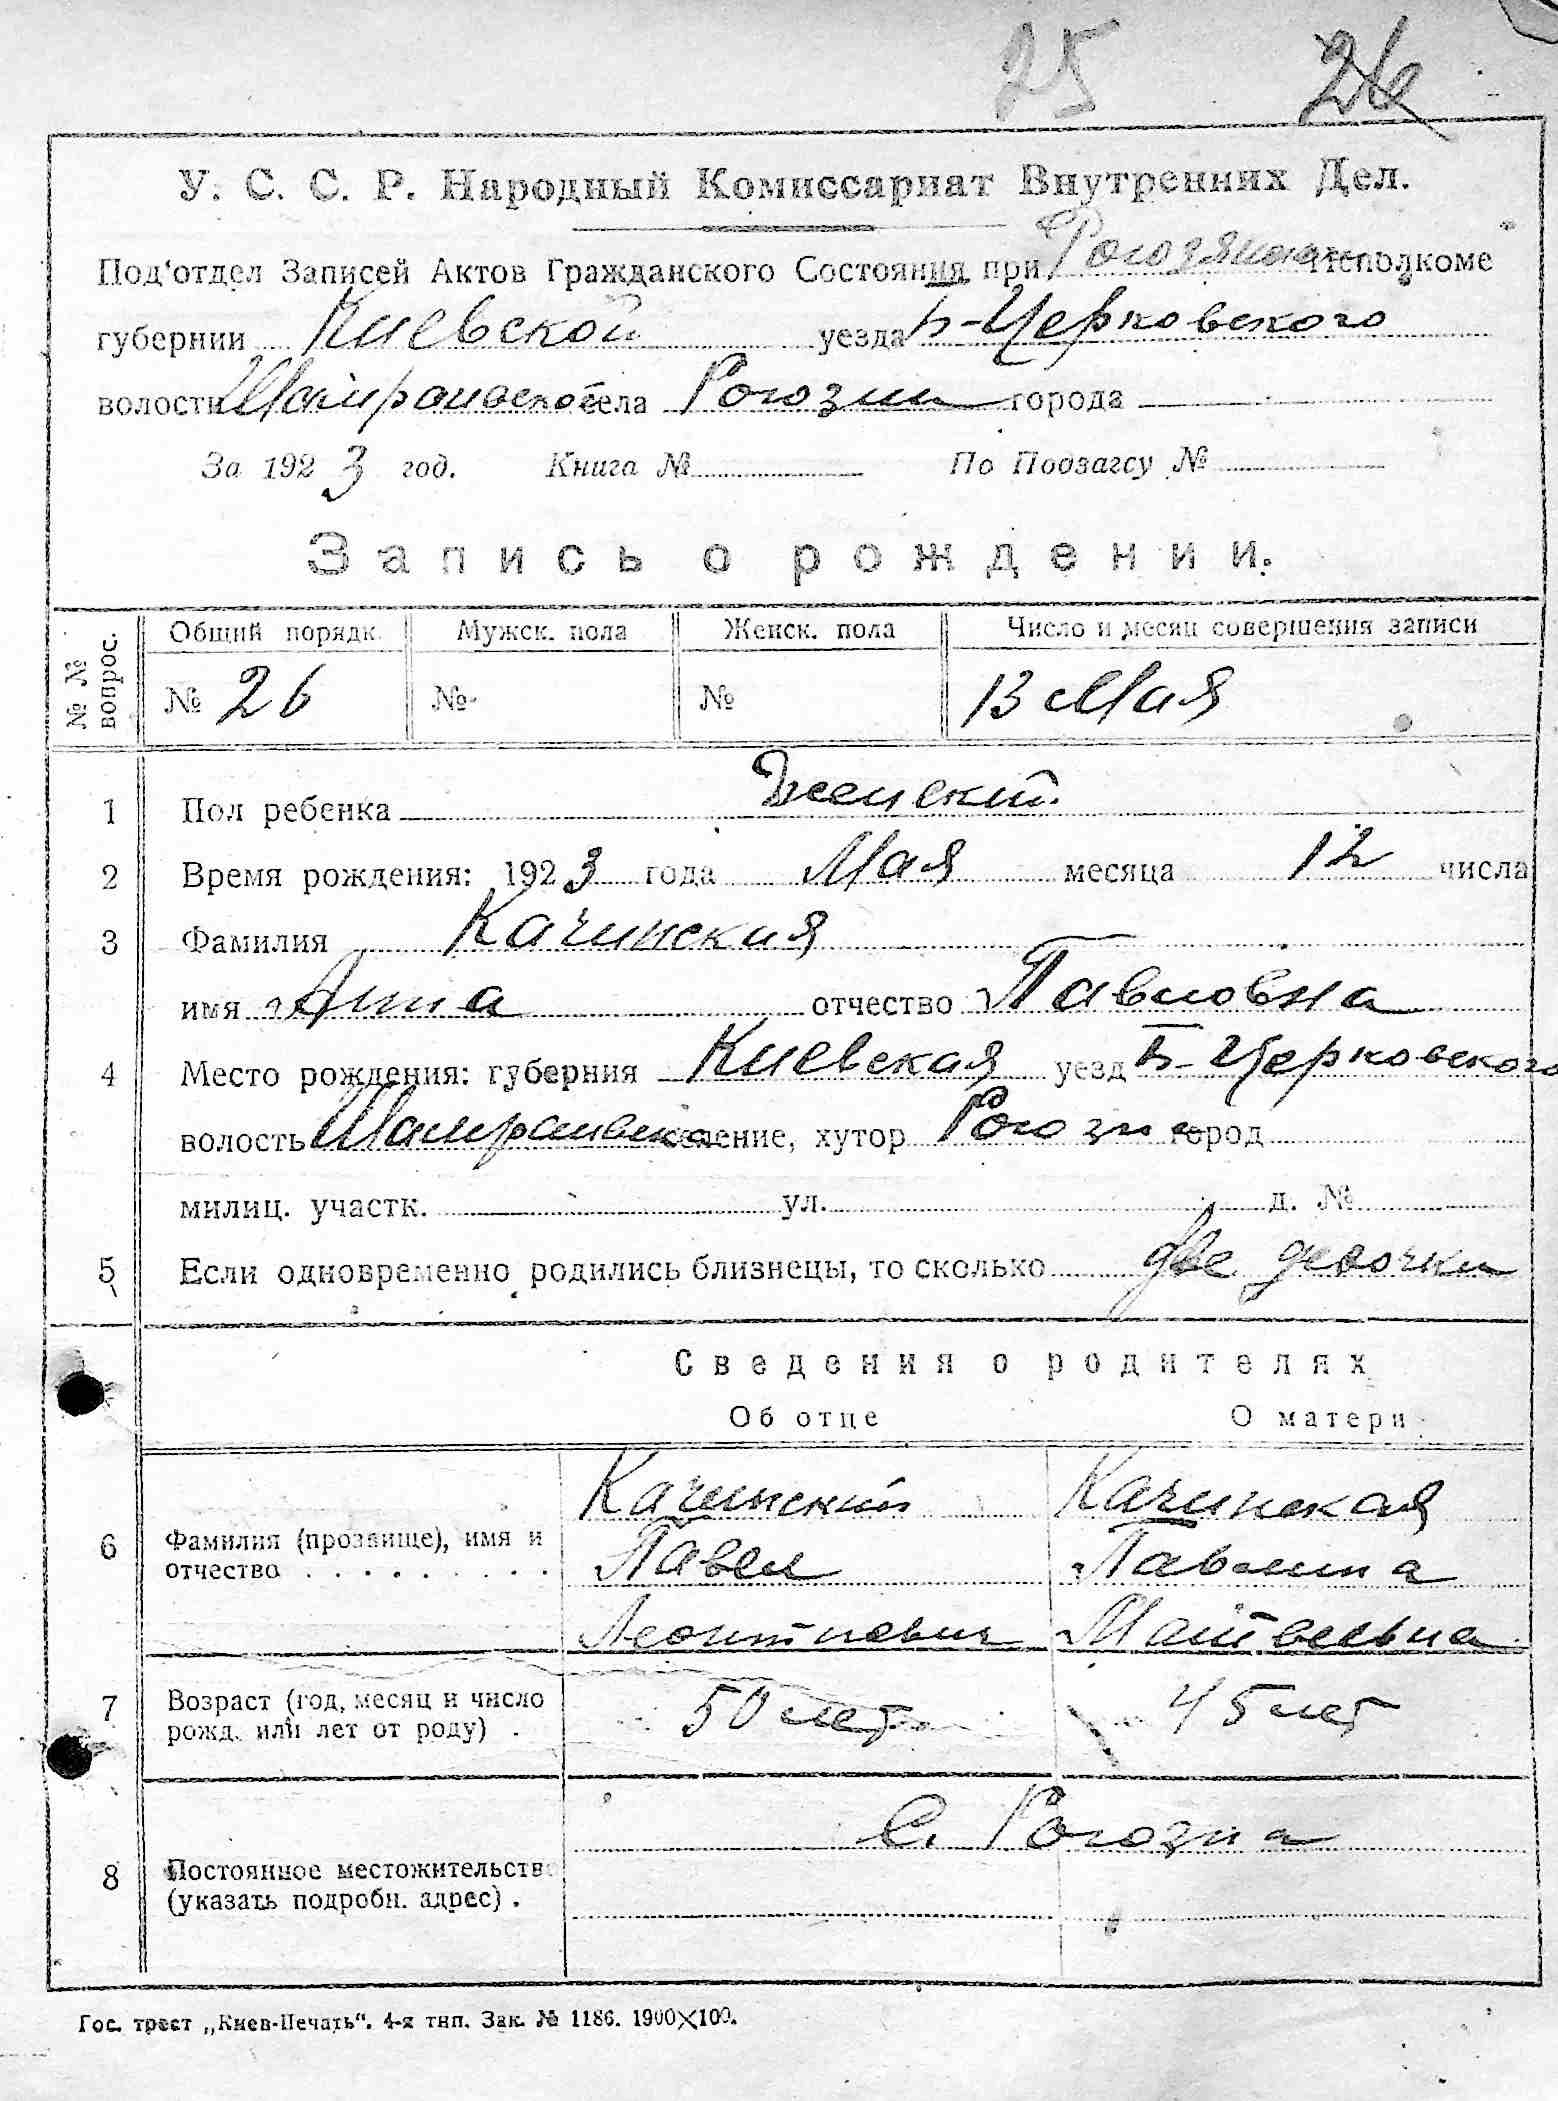 25 26
У. С. С. Р. Народный Комиссариат Внутренних Дел.
Под‘отдел Записей Актов Гражданского Состояния при Исполкоме
губернии Киевской уезда Б-Церковского
волости Шамраевской села Рогозни города
За 1923 год. Книга № По Подзагсу №
Запись о рождении.
№ № вопрос. Общий порядк. Мужск. пола Женск. пола Число и месяц совершения записи
№ 26 № № 13 Мая
1 Пол ребенка Женский.
2 Время рождения: 1923 года Мая месяца 12 числа
3 Фамилия Качинская
имя Анна отчество Павловна
4 Место рождения: губерния Киевская уезд Б-Церковского
волость селение, хутор Рогозна город
милиц. участк. ул. д. №
5 Если одновременно родились близнецы, то сколько две девочки
Сведения о родителях
Об отце О матери
Качинский Качинская
6 Фамилия (прозвище), имя и отчество Павел Павлина
Леонтиевич Матвеевна
7 Возраст (год, месяц и число рожд. или лет от роду) . 50 лет 45 лет
С. Рогозна
8 Постоянное местожительство (указать подробн. адрес) .
Гос. трест „Киев-Печать“. 4-я тип. Зак. № 1186. 1900×100.